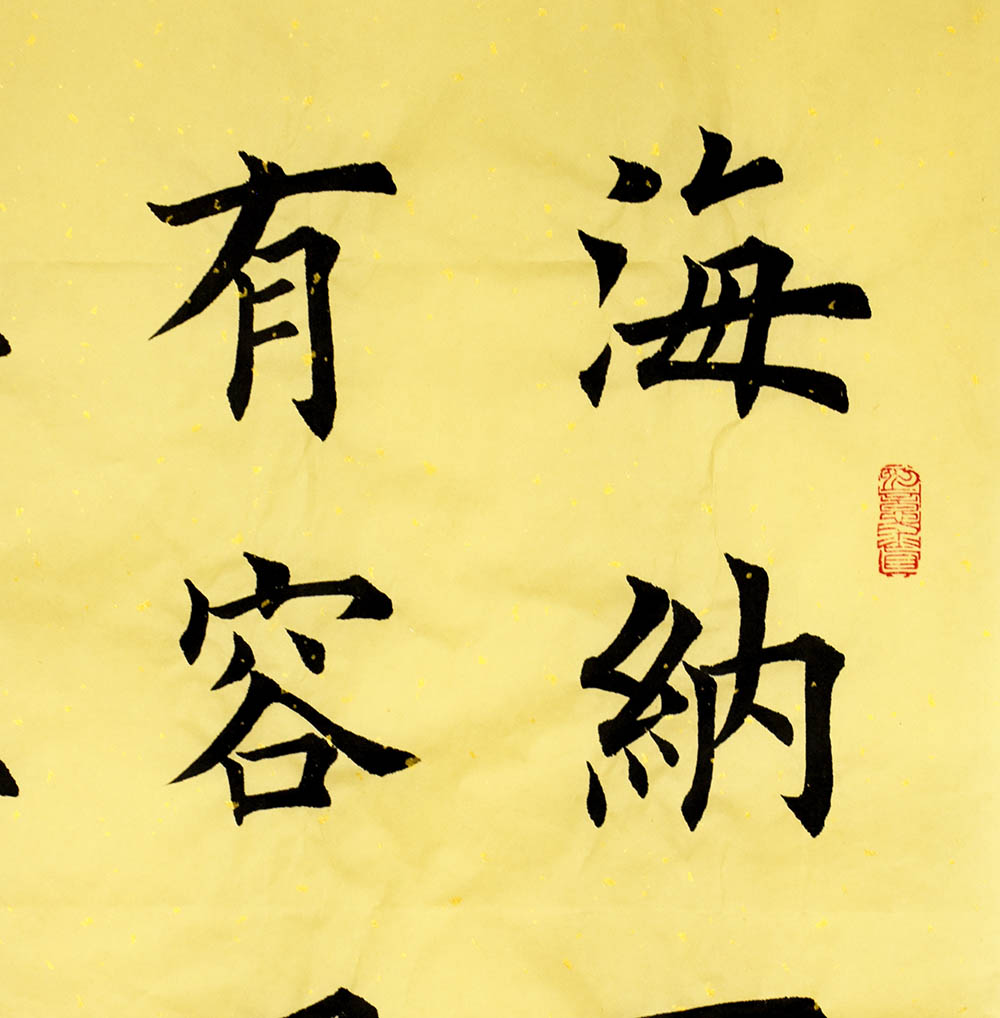 海納
有容